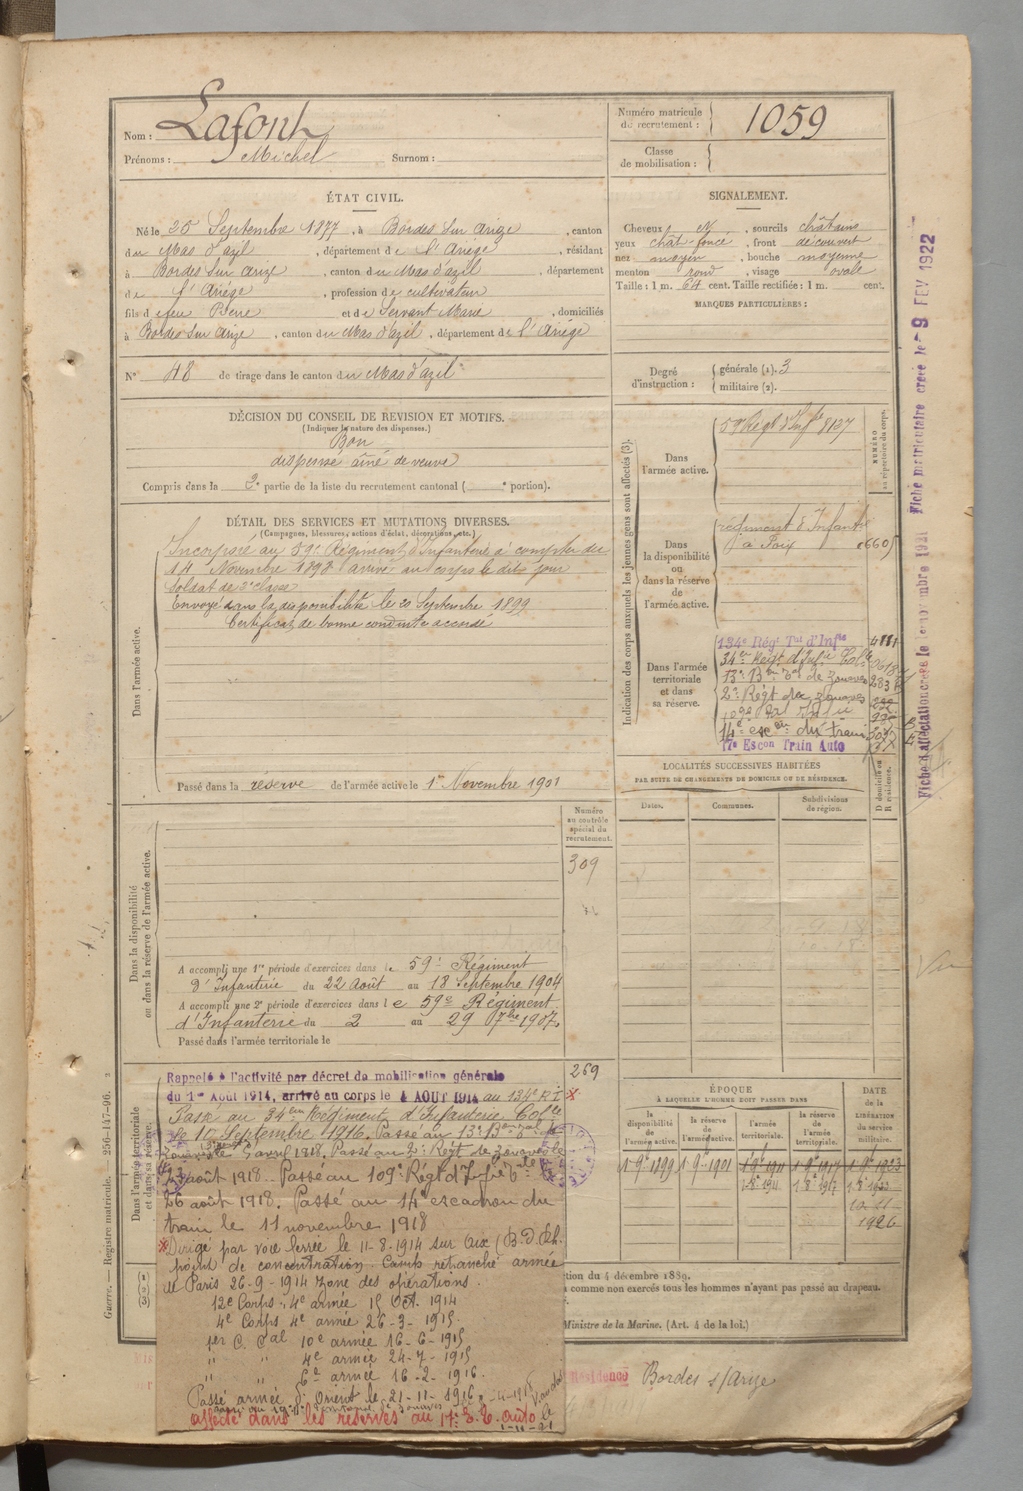 Nom : Lafont
Prénoms : Michel Surnom :
Numéro matricule du recrutement : 1059
Classe de mobilisation :
ÉTAT CIVIL.
Né le 25 Septembre 1877, à Bordes sur Arize, canton
du Mas d'azil, département de l'Ariège, résidant
à Bordes sur Arize, canton du Mas d'azil, département
de l'Ariège, profession de cultivateur
fils de feu Pierre et de Servant Marie, domiciliés
à Bordes sur Arize, canton du Mas d'azil, département de l'Ariège
N° 48 de tirage dans le canton du Mas d'azil
SIGNALEMENT.
Cheveux N, sourcils châtains
yeux chât-foncé, front découvert
nez moyen, bouche moyenne
menton rond, visage ovale
Taille : 1 m. 64 cent. Taille rectifiée : 1 m. cent.
MARQUES PARTICULIÈRES :
Degré d'instruction : générale (1). 3
militaire (2).
DÉCISION DU CONSEIL DE REVISION ET MOTIFS.
(Indiquer la nature des dispenses.)
Bon
dispensé aîné de veuve
Compris dans la 2e partie de la liste du recrutement cantonal ( e portion).
DÉTAIL DES SERVICES ET MUTATIONS DIVERSES.
(Campagnes, blessures, actions d'éclat, décorations, etc.)
Dans l'armée active.
Incorporé au 59e Régiment d'Infanterie à compter du
14 Novembre 1898 arrivé au corps le dit jour
Soldat de 2e classe
Envoyé dans la disponibilité le 20 Septembre 1899
Certificat de bonne conduite accordé
Passé dans la réserve de l'armée active le 1er Novembre 1901
Indication des corps auxquels les jeunes gens sont affectés (3).
NUMÉRO au répertoire du corps.
Dans l'armée active. 59 Régt d'Infie 8137
Dans la disponibilité ou dans la réserve de l'armée active.
régiment d'Infantie
à Foix 6605
Dans l'armée territoriale et dans sa réserve.
134e Régt Tal d'Infie
34e Régt d'Infie Colle
13e Bon Tal de Zouaves 283
2e Régt de Zouaves
109e
14e escon du train
17e Escon Train Auto
LOCALITÉS SUCCESSIVES HABITÉES
PAR SUITE DE CHANGEMENTS DE DOMICILE OU DE RÉSIDENCE.
Dates. Communes. Subdivisions de région. D domicile ou R résidence.
Numéro au contrôle spécial du recrutement.
309
Dans la disponibilité ou dans la réserve de l'armée active.
A accompli une 1re période d'exercices dans le 59e Régiment
d'Infanterie du 22 Août au 18 Septembre 1904
A accompli une 2e période d'exercices dans le 59e Régiment
d'Infanterie du 2 au 29 7bre 1907
Passé dans l'armée territoriale le
269
Dans l'armée territoriale et dans sa réserve.
Rappelé à l'activité par décret de mobilisation générale
du 1er Août 1914, arrivé au corps le 4 AOUT 1914 au 134e RI
Passé au 34eme Régiment d'Infanterie Colle
le 10 Septembre 1916. Passé au 13e Bon Tal de
Zouaves le 5 avril 1918, Passé au 2e Régt de Zouaves le
23 août 1918. Passé au 109e Régt d'Infie le
26 août 1918. Passé au 14e escadron du
train le 11 novembre 1918
Dirigé par voie ferrée le 11-8-1914 sur Aix (B.d.Rh.
point de concentration. Camp retranché armée
de Paris 26-9-1914 zone des opérations.
12e Corps, 4e armée 15 Oct. 1914
4e Corps 4e armée 26-3-1915
1er C. Cal 10e armée 16-6-1915
" " 4e armée 24-7-1915
" " 6e armée 16-2-1916
Passé armée d'Orient le 21-11-1916
affecté dans les réserves au 17e E.T. Auto le
1-11-21
ÉPOQUE
À LAQUELLE L'HOMME DOIT PASSER DANS
la disponibilité de l'armée active. la réserve de l'armée active. l'armée territoriale. la réserve de l'armée territoriale.
DATE de la LIBÉRATION du service militaire.
1 9e 1899 1 9e 1901 1 9e 1911 1 9e 1917 1 9e 1923
1-8-1911 1-8-1917 1-8-1923
10-11-1926
tion du 4 décembre 1889.
comme non exercés tous les hommes n'ayant pas passé au drapeau.
Ministre de la Marine. (Art. 4 de la loi.)
Résidence Bordes s/Arize
Guerre. — Registre matricule. — 256-147-96.
Fiche d'affectation créée le 1921 Fiche matriculaire créée le 9 FEV 1922